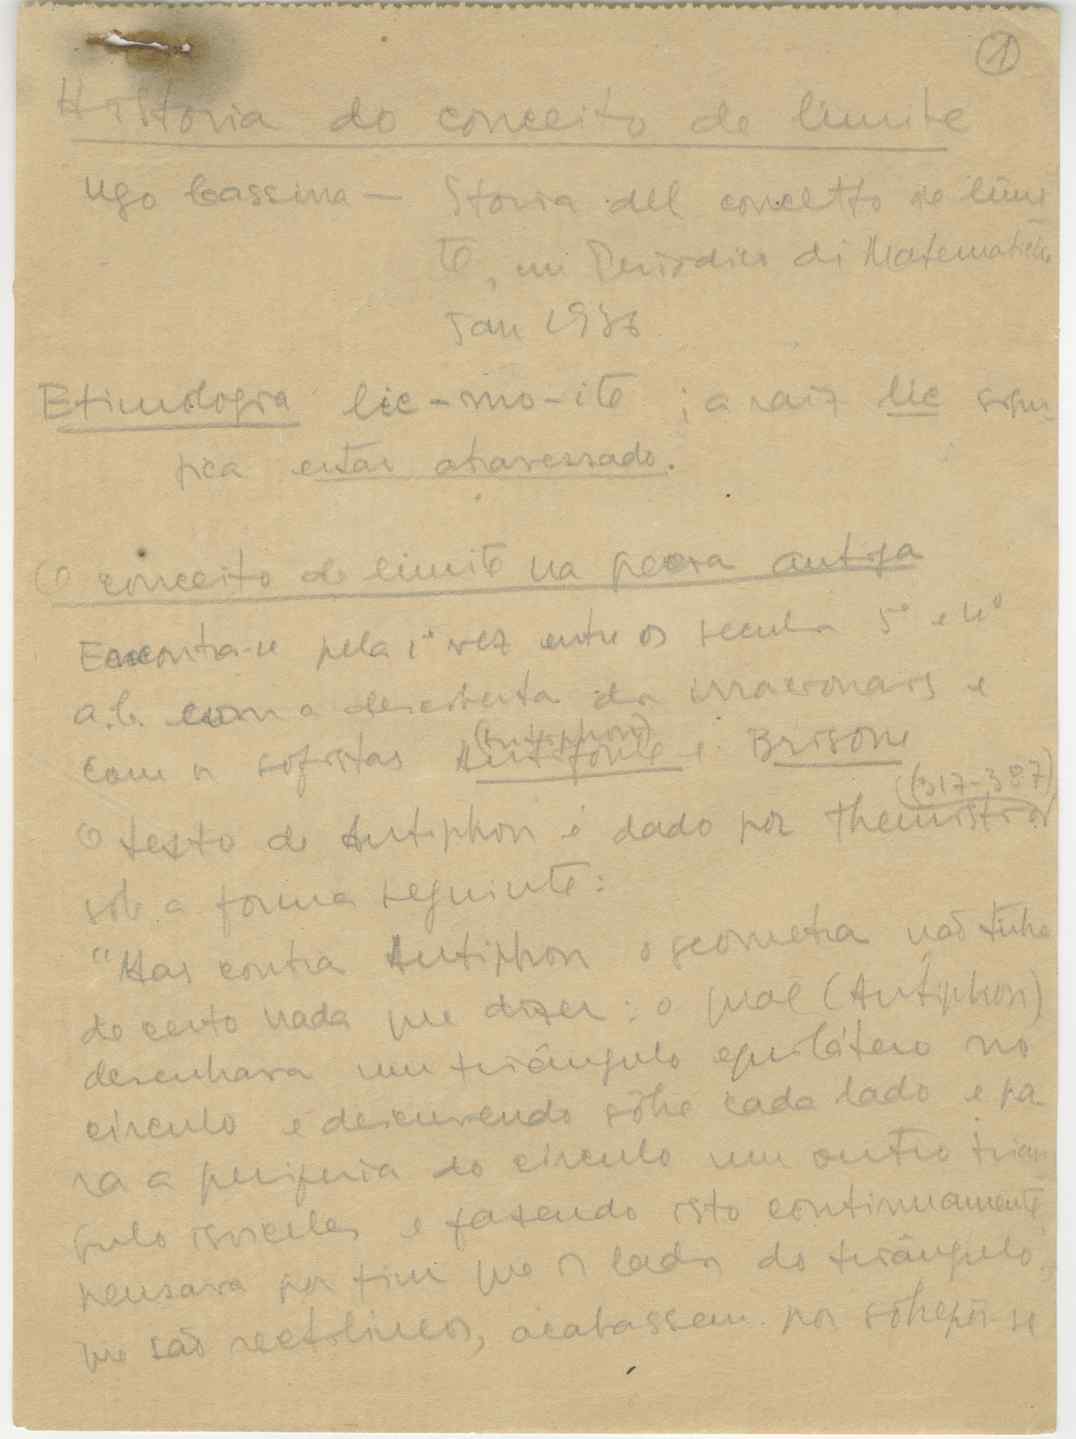 1
Historia do conceito de limite
Ugo Cassina — Storia del concetto de limi
te, in Periodico di Matematiche
Jan 1936
Etimologia lic-mo-ite ; a raiz lic signi
fica estar atravessado.
O conceito de limite na antiga
Encontra-se pela 1ª vez entre os seculos 5º e 4º
a.C. com a descoberta dos irracionais e
(Antiphon)
com os sofistas Antifonte e Brisone
(317-387)
O texto de Antiphon é dado por Themistios
sob a forma seguinte:
"Mas contra Antiphon o geometra não tinha
de certo nada que dizer: o qual (Antiphon)
desenhava um triângulo equilátero no
circulo e descrevendo sôbre cada lado e pa
ra a periferia do circulo um outro triân
gulo isosceles e fazendo isto continuamente,
pensava por fim que os lados do triângulo,
que são rectilineos, acabassem por sôbrepôr-se